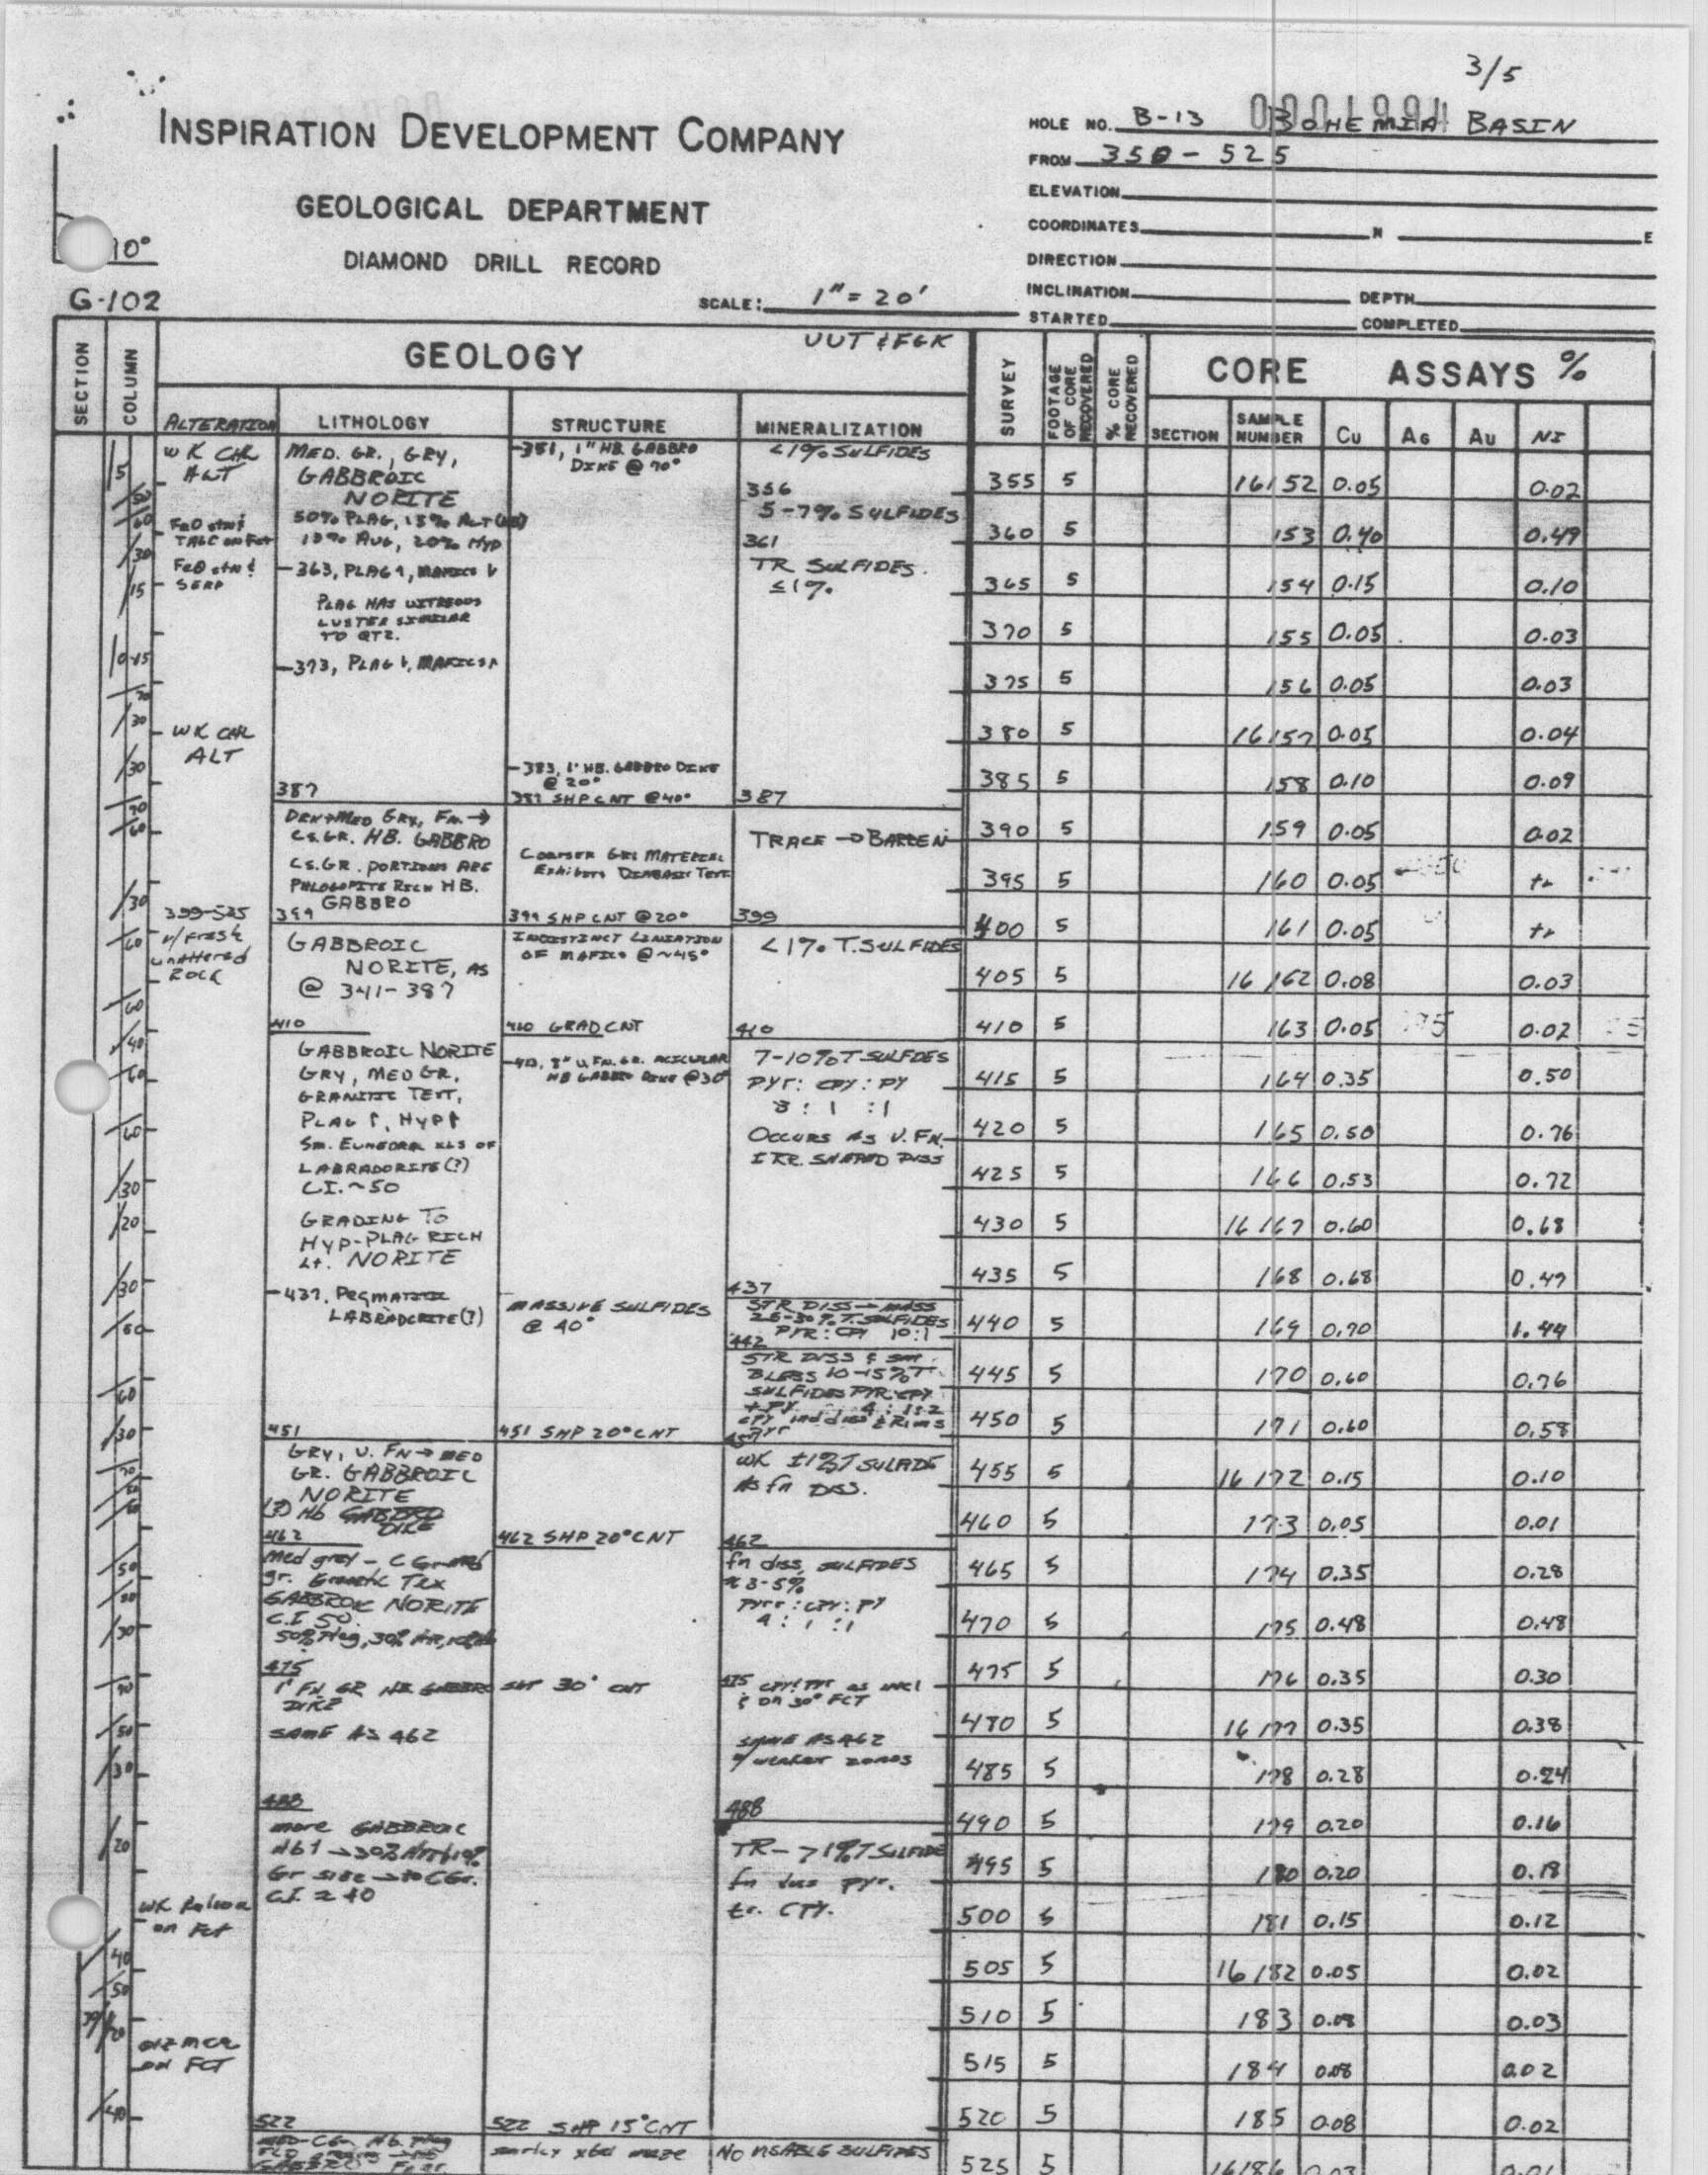 3/5
0001994
INSPIRATION DEVELOPMENT COMPANY
GEOLOGICAL DEPARTMENT
DIAMOND DRILL RECORD
10°
G-102
SCALE: 1" = 20'
HOLE NO. B-13 BOHEMIA BASIN
FROM 350 - 525
ELEVATION
COORDINATES N E
DIRECTION
INCLINATION DEPTH
STARTED COMPLETED
SECTION COLUMN GEOLOGY SURVEY FOOTAGE OF CORE RECOVERED % CORE RECOVERED CORE ASSAYS %
ALTERATION LITHOLOGY STRUCTURE MINERALIZATION SECTION SAMPLE NUMBER Cu Ag Au Ni
WK CHL
ALT
FeO stn &
TALC on Fct
FeO stn &
SERP
WK CHL
ALT
399-525
w/ Fresh
unaltered
ROCK
on Fct
ON FCT
MED. GR., GRY,
GABBROIC
NORITE
50% PLAG, 15% ALT
15% AUG, 20% HYP
-363, PLAG ↑, MAFICS ↓
PLAG HAS VITREOUS
LUSTER SIMILAR
TO QTZ.
-373, PLAG ↓, MAFICS ↑
387
DRK→MED GRY, FN. →
CS. GR. HB. GABBRO
CS. GR. PORTIONS ARE
PHLOGOPITE RICH HB.
GABBRO
399
GABBROIC
NORITE, AS
@ 341-387
410
GABBROIC NORITE
GRY, MED GR,
GRANITIC TEXT,
PLAG ↑, HYP↑
SM. EUHEDRA XLS OF
LABRADORITE (?)
C.I. ~50
GRADING TO
HYP-PLAG RICH
Lt. NORITE
-437, PEGMATITIC
LABRADORITE (?)
451
GRY, V. FN → MED
GR. GABBROIC
NORITE
(?) Hb GABBRO
DIKE
462
Med grey - C Gr
gr. Granitic Tex
GABBROIC NORITE
C.I 50.
50% Plag, 30%
475
1' FN GR HB GABBRO
DIKE
SAME AS 462
488
more GABBROIC
Gr size → to CGr.
C.I. ≈ 40
522
-351, 1" HB. GABBRO
DIKE @ 70°
-383, 1' HB. GABBRO DIKE
@ 20°
387 SHP CNT @ 40°
COARSER GRN MATERIAL
Exhibits DIABASIC TEXT
399 SHP CNT @ 20°
INDISTINCT LINEATION
OF MAFICS @ ~45°
410 GRAD CNT
V. FN. GR. ACICULAR
HB GABBRO DIKE @ 30°
MASSIVE SULFIDES
@ 40°
451 SHP 20° CNT
462 SHP 20° CNT
30° CNT
522 SHP 15° CNT
<1% SULFIDES
356
5-7% SULFIDES
361
TR SULFIDES.
≤1%
387
TRACE → BARREN
399
<1% T. SULFIDES
410
7-10% T SULFDES
PYr: CPY: PY
3 : 1 : 1
OCCURS AS V. FN.
IRR. SHAPED DISS
437
STR DISS → MASS
25-30% T. SULFIDES
PYR: CPY 10:1
442
STR DISS & SM.
BLEBS 10-15% T
SULFIDES PYR: CPY
+ PY 4:1:2
WK ±1% T SULFIDE
As fn DISS.
462
fn diss, SULFIDES
≈ 3-5%
Pyrr: CPY: PY
4 : 1 : 1
475 CPY! PYr as incl
& on 30° FCT
SAME AS 462
w/ weaker zones
488
TR - >1% T SULFIDE
fn diss pyr.
tr. CPY.
NO VISABLE SULFIDES
355 5 16152 0.05 0.02
360 5 153 0.40 0.49
365 5 154 0.15 0.10
370 5 155 0.05 0.03
375 5 156 0.05 0.03
380 5 16157 0.05 0.04
385 5 158 0.10 0.09
390 5 159 0.05 0.02
395 5 160 0.05 tr
400 5 161 0.05 tr
405 5 16162 0.08 0.03
410 5 163 0.05 0.02
415 5 164 0.35 0.50
420 5 165 0.50 0.76
425 5 166 0.53 0.72
430 5 16167 0.60 0.68
435 5 168 0.68
440 5 169 0.70 1.44
445 5 170 0.60 0.76
450 5 171 0.60 0.58
455 5 16172 0.15 0.10
460 5 173 0.05 0.01
465 5 174 0.35 0.28
470 5 175 0.48 0.48
475 5 176 0.35 0.30
480 5 16177 0.35 0.38
485 5 178 0.28 0.24
490 5 179 0.20 0.16
495 5 180 0.20 0.18
500 5 181 0.15 0.12
505 5 16182 0.05 0.02
510 5 183 0.08 0.03
515 5 184 0.08 0.02
520 5 185 0.08 0.02
525 5 16186